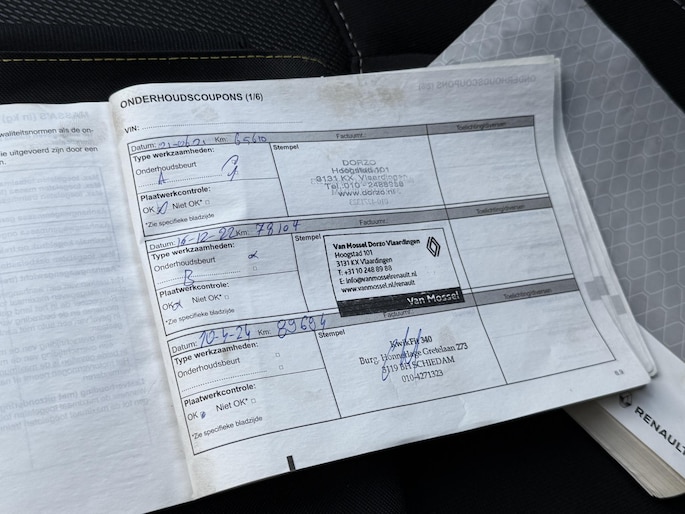 waliteitsnormen als de on-
ie uitgevoerd zijn door een
ONDERHOUDSCOUPONS (1/6)
VIN:
Datum: Km: 65610 Factuurnr.: Toelichting/diversen
Type werkzaamheden:
Stempel
Onderhoudsbeurt
A
DORZO
Hoogstad 101
3131 KX Vlaardingen
Tel. 010 - 2488958
www.dorzo.nl
Plaatwerkcontrole:
OK Niet OK*
*Zie specifieke bladzijde
Datum: 16-12-22 Km: 78104 Factuurnr.: Toelichting/diversen
Type werkzaamheden:
Stempel
Onderhoudsbeurt
B
Van Mossel Dorzo Vlaardingen
Hoogstad 101
3131 KX Vlaardingen
T: +31 10 248 89 88
E: info@vanmosselrenault.nl
www.vanmossel.nl/renault
Van Mossel
Plaatwerkcontrole:
OK Niet OK*
*Zie specifieke bladzijde
Datum: 10-4-24 Km: 89684 Factuurnr.: Toelichting/diversen
Type werkzaamheden:
Stempel
Onderhoudsbeurt
KwikFit 340
Burg. Honnerlage Gretelaan 273
SCHIEDAM
010-4271323
Plaatwerkcontrole:
OK Niet OK*
*Zie specifieke bladzijde
RENAULT